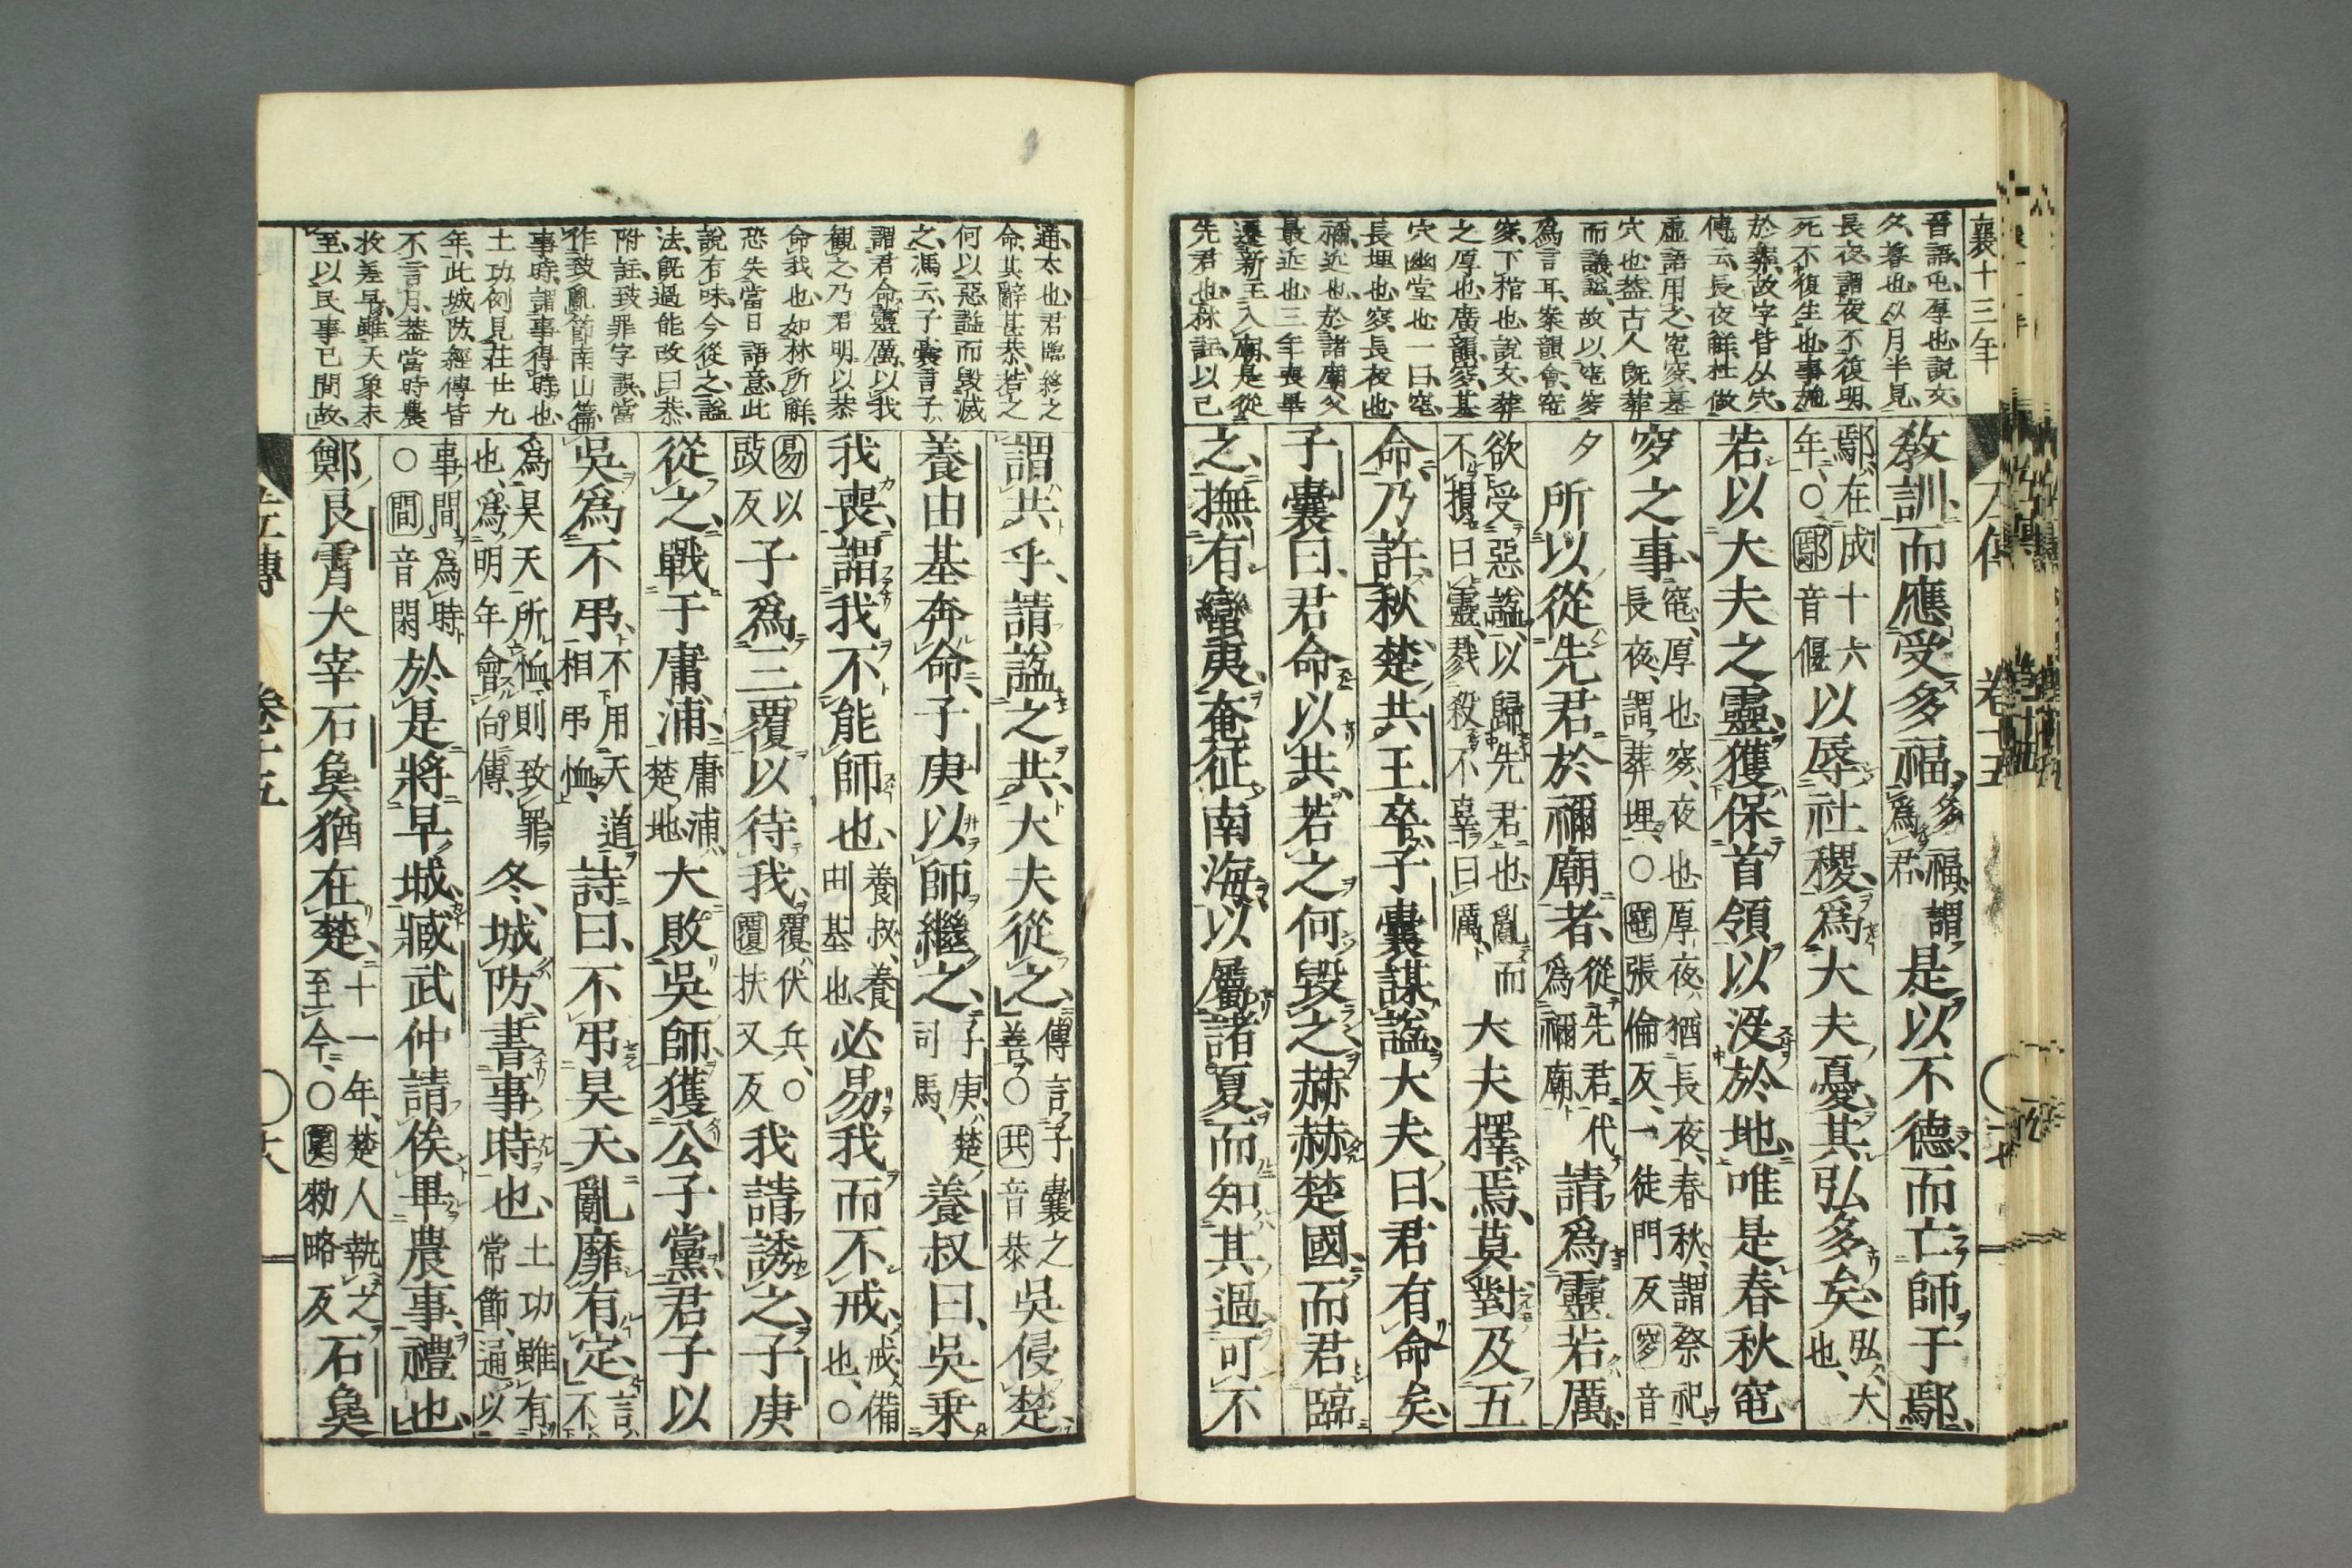 襄十三年
晉語、屯、厚也、説文、
夕、暮也、从月半見、
長夜、謂夜不復明、
死不復生也、事施
於葬、故字皆从穴、
傳云、長夜解、杜倣
虛語用之、窀穸、墓
穴也、蓋古人既葬
而議謚、故以窀穸
爲言耳、案韻會、窀
穸、下棺也、説文、葬
之厚也、廣韻、穸、墓
穴幽堂也、一曰、窀、
長埋也、穸、長夜也、
禰、近也、於諸廟父
最近也、三年喪畢
遷新主入廟、是從
先君也、林註、以己
教訓而應受多福、多福、謂
爲君、是以不德、而亡師于鄢、
鄢、在成十六
年、○鄢音偃以辱社稷、爲大夫憂、其弘多矣、弘、大
也、
若以大夫之靈、獲保首領以沒於地、唯是春秋窀
穸之事、窀、厚也、穸、夜也、厚夜、猶長夜、春秋、謂祭祀、
長夜、謂葬埋、○窀張倫反、一徒門反、穸音
夕所以從先君於禰廟者、從先君代
爲禰廟、請爲靈若厲、
欲受惡謚、以歸先君也、亂而
不損曰靈、戮殺不辜曰厲、大夫擇焉、莫對、及五
命、乃許、秋、楚共王卒、子囊謀謚、大夫曰、君有命矣、
子囊曰、君命以共、若之何毀之、赫赫楚國、而君臨
之、撫有蠻夷、奄征南海、以屬諸夏、而知其過、可不
左傳 卷十五
通、太也、君臨終之
命、其辭甚恭、若之
何以惡謚而毀滅
之、馮云、子囊言、子
謂君命靈厲、以我
觀之、乃君明以恭
命我也、如林所解、
恐失當日語意、此
説有味、今從之、謚
法、既過能改曰恭、
附註、致罪字誤、當
作致亂、節南山篇、
事時、謂事得時也、
土功例見莊廿九
年、此城防、經傳皆
不言月、蓋當時農
收差早、雖天象未
至、以民事已間故、
謂共乎、請謚之共、大夫從之、傳言子囊之
善、○共音恭吳侵楚、
養由基奔命、子庚以師繼之、子庚、楚
司馬、養叔曰、吳乗
我喪、謂我不能師也、養叔、養
由基也、必易我而不戒、戒、備
也、○
易以
豉反子爲三覆以待我、覆、伏兵、○
覆扶又反我請誘之、子庚
從之、戰于庸浦、庸浦、
楚地、大敗吳師、獲公子黨、君子以
吳爲不弔、不用天道
相弔恤、詩曰、不弔昊天、亂靡有定、言、不
爲昊天所恤、則致罪、
也、爲明年會向傳、冬、城防、書事時也、土功雖有
常節、通以
事間爲時、
○間音閑於是將早城、臧武仲請俟畢農事、禮也、
鄭良霄大宰石㚟猶在楚、十一年、楚人執之、
至今、○㚟勑略反石㚟
左傳 卷十五